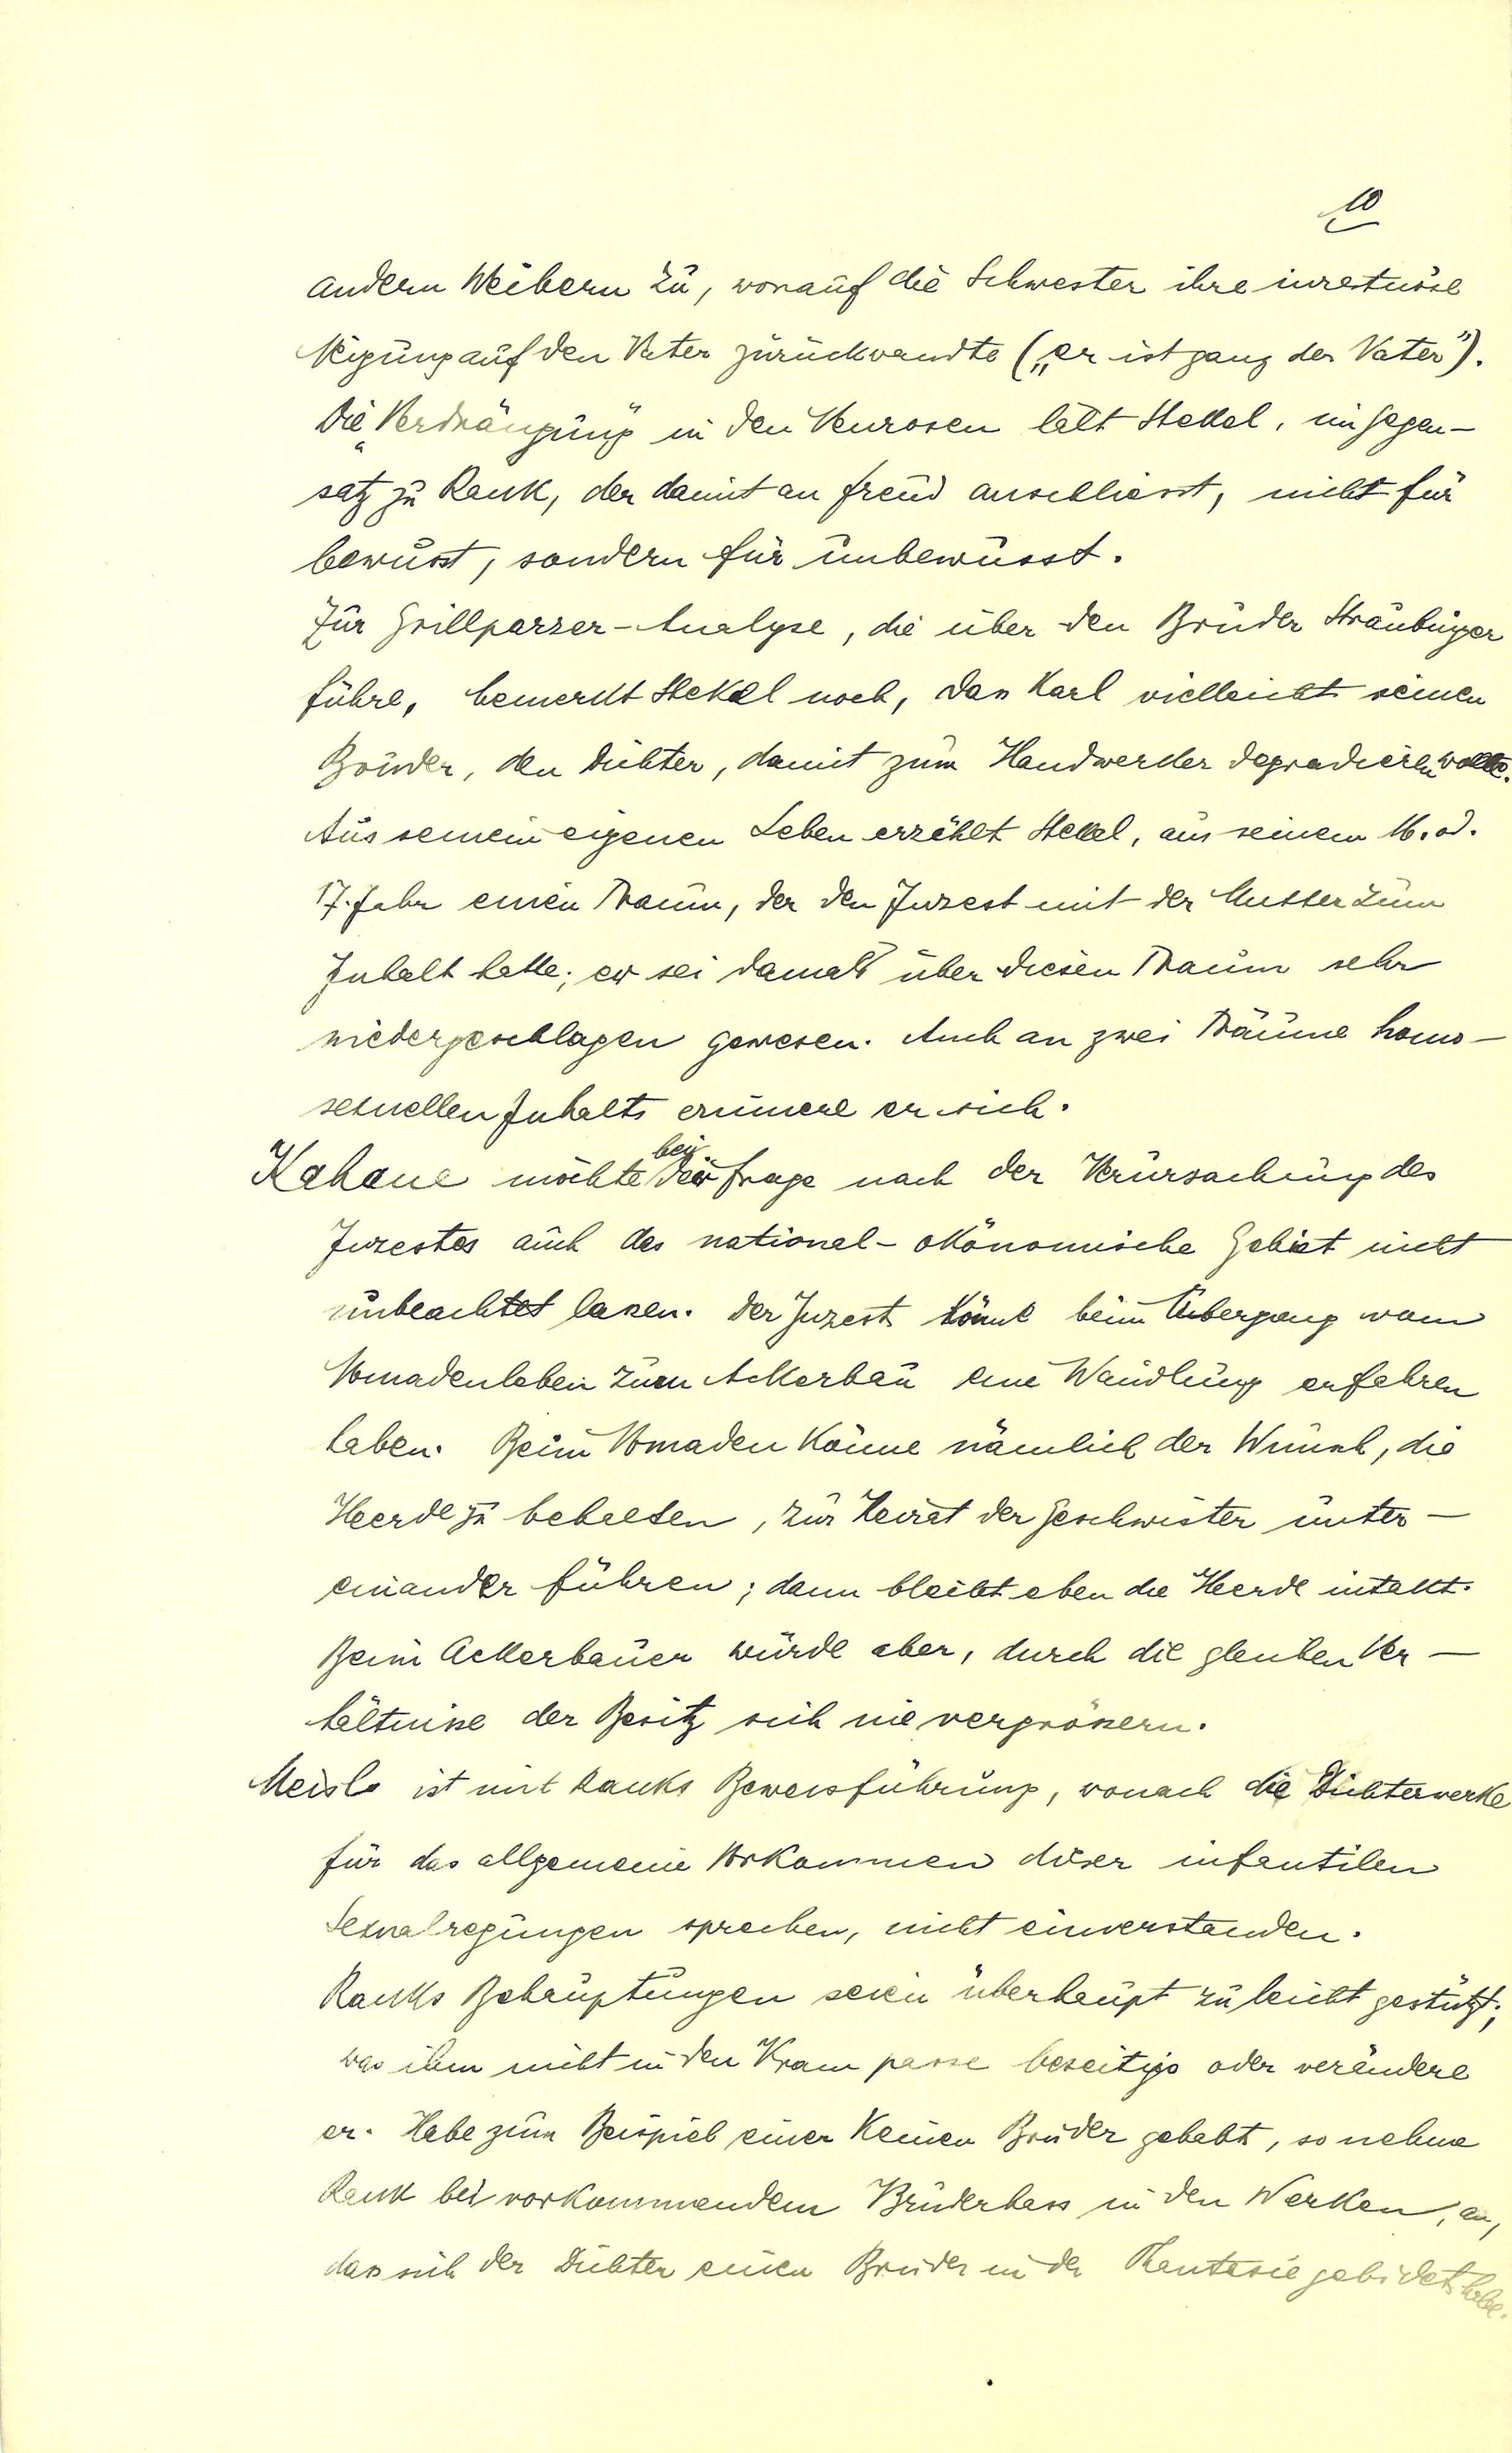 10
andern Weibern zu, worauf die Schwester ihre inzestuöse
Neigung auf den Vater zurückwandte („er ist ganz der Vater").
Die „Verdrängung" in den Neurosen hält Stekel, im Gegen-
satz zu Rank, der damit an Freud anschliesst, nicht für
bewusst, sondern für unbewusst.
Zur Grillparzer-Analyse, die über den Bruder Straubinger
führe, bemerkt Stekel noch, dass Karl vielleicht seinen
Bruder, den Dichter, damit zum Handwerker degradieren wollte.
Aus seinem eigenen Leben erzählt Stekel, aus seinem 16. od.
17. Jahr einen Traum, der den Inzest mit der Mutter zum
Inhalt hatte; er sei damals über diesen Traum sehr
niedergeschlagen gewesen. Auch an zwei Träume homo-
sexuellen Inhalts erinnere er sich.
Kahane möchte bei der Frage nach der Verursachung des
Inzestes auch das national-ökonomische Gebiet nicht
unbeachtet lassen. Der Inzest könne beim Übergang vom
Nomadenleben zum Ackerbau eine Wandlung erfahren
haben. Beim Nomaden könne nämlich der Wunsch, die
Heerde zu behalten, zur Heirat der Geschwister unter-
einander führen; dann bleibt eben die Heerde intakt.
Beim Ackerbauer würde aber, durch die gleichen Ver-
hältnisse der Besitz sich nie vergrössern.
Meisl ist mit Ranks Beweisführung, wonach die Dichterwerke
für das allgemeine Vorkommen dieser infantilen
Sexualregungen sprechen, nicht einverstanden.
Ranks Behauptungen seien überhaupt zu leicht gestützt;
was ihm nicht in den Kram passe beseitige oder verändere
er. Habe zum Beispiel einer keinen Bruder gehabt, so nehme
Rank bei vorkommendem Bruderhass in den Werken, an,
dass sich der Dichter einen Bruder in der Phantasie gebildet habe.